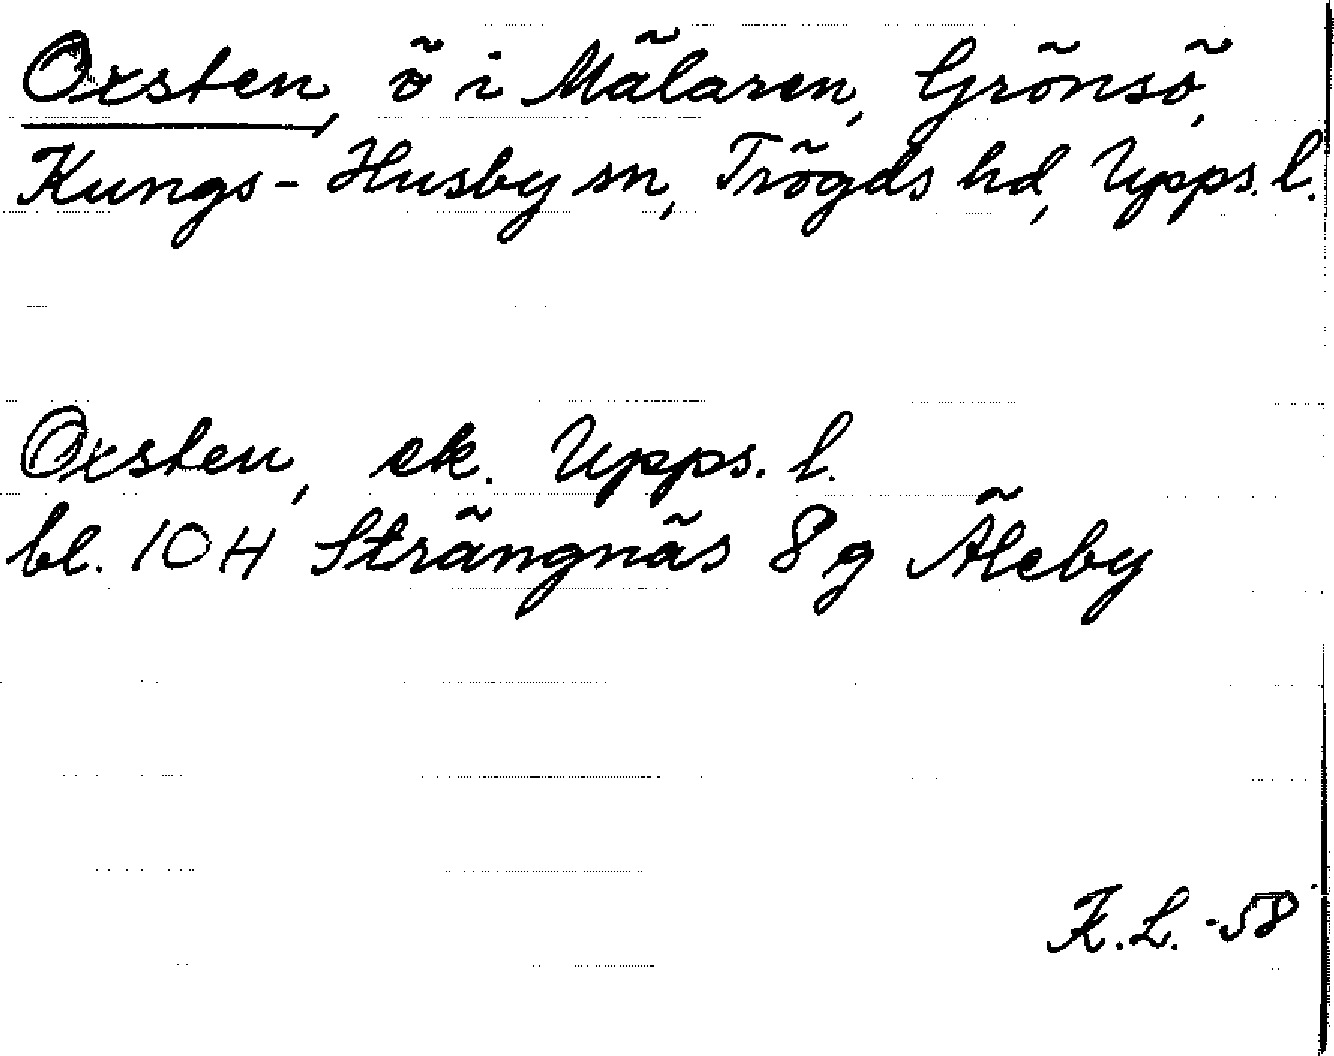 Oxsten, ö i Mälaren, Grönsö,
Kungs-Husby sn, Trögds hd, Upps. l.
Oxsten, ek. Upps. l.
bl. 10 H Strängnäs 8 g Äleby
K.L. -58